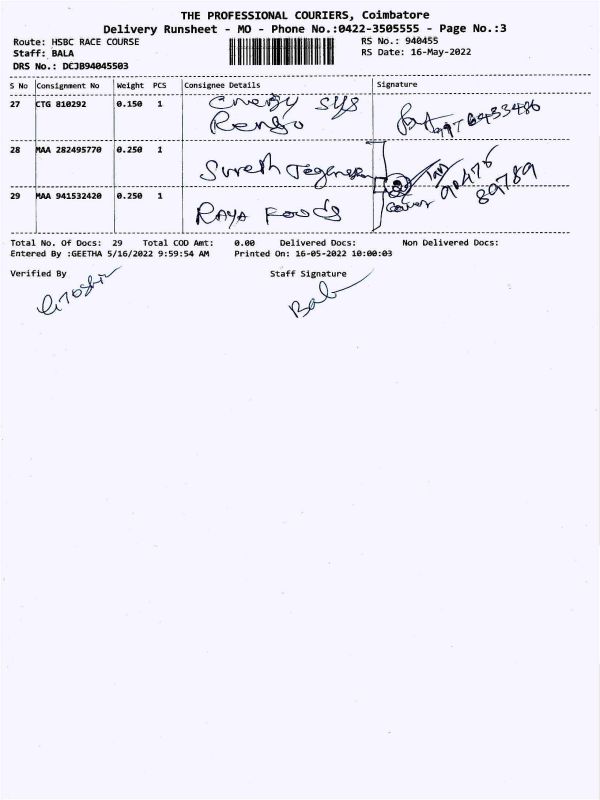 THE PROFESSIONAL COURIERS, Coimbatore
Delivery Runsheet - MO - Phone No.:0422-3505555 - Page No.:3
Route: HSBC RACE COURSE
RS No.: 940455
Staff: BALA
RS Date: 16-May-2022
DRS No.: DCJB94045503
S No Consignment No Weight PCS Consignee Details Signature
27 CTG 810292 0.150 1 Energy sys
Rengo
28 MAA 282495770 0.250 1 Suresh
90476
89789
29 MAA 941532420 0.250 1 RAYA FOODS
Total No. Of Docs: 29 Total COD Amt: 0.00 Delivered Docs: Non Delivered Docs:
Entered By :GEETHA 5/16/2022 9:59:54 AM Printed On: 16-05-2022 10:00:03
Verified By Staff Signature